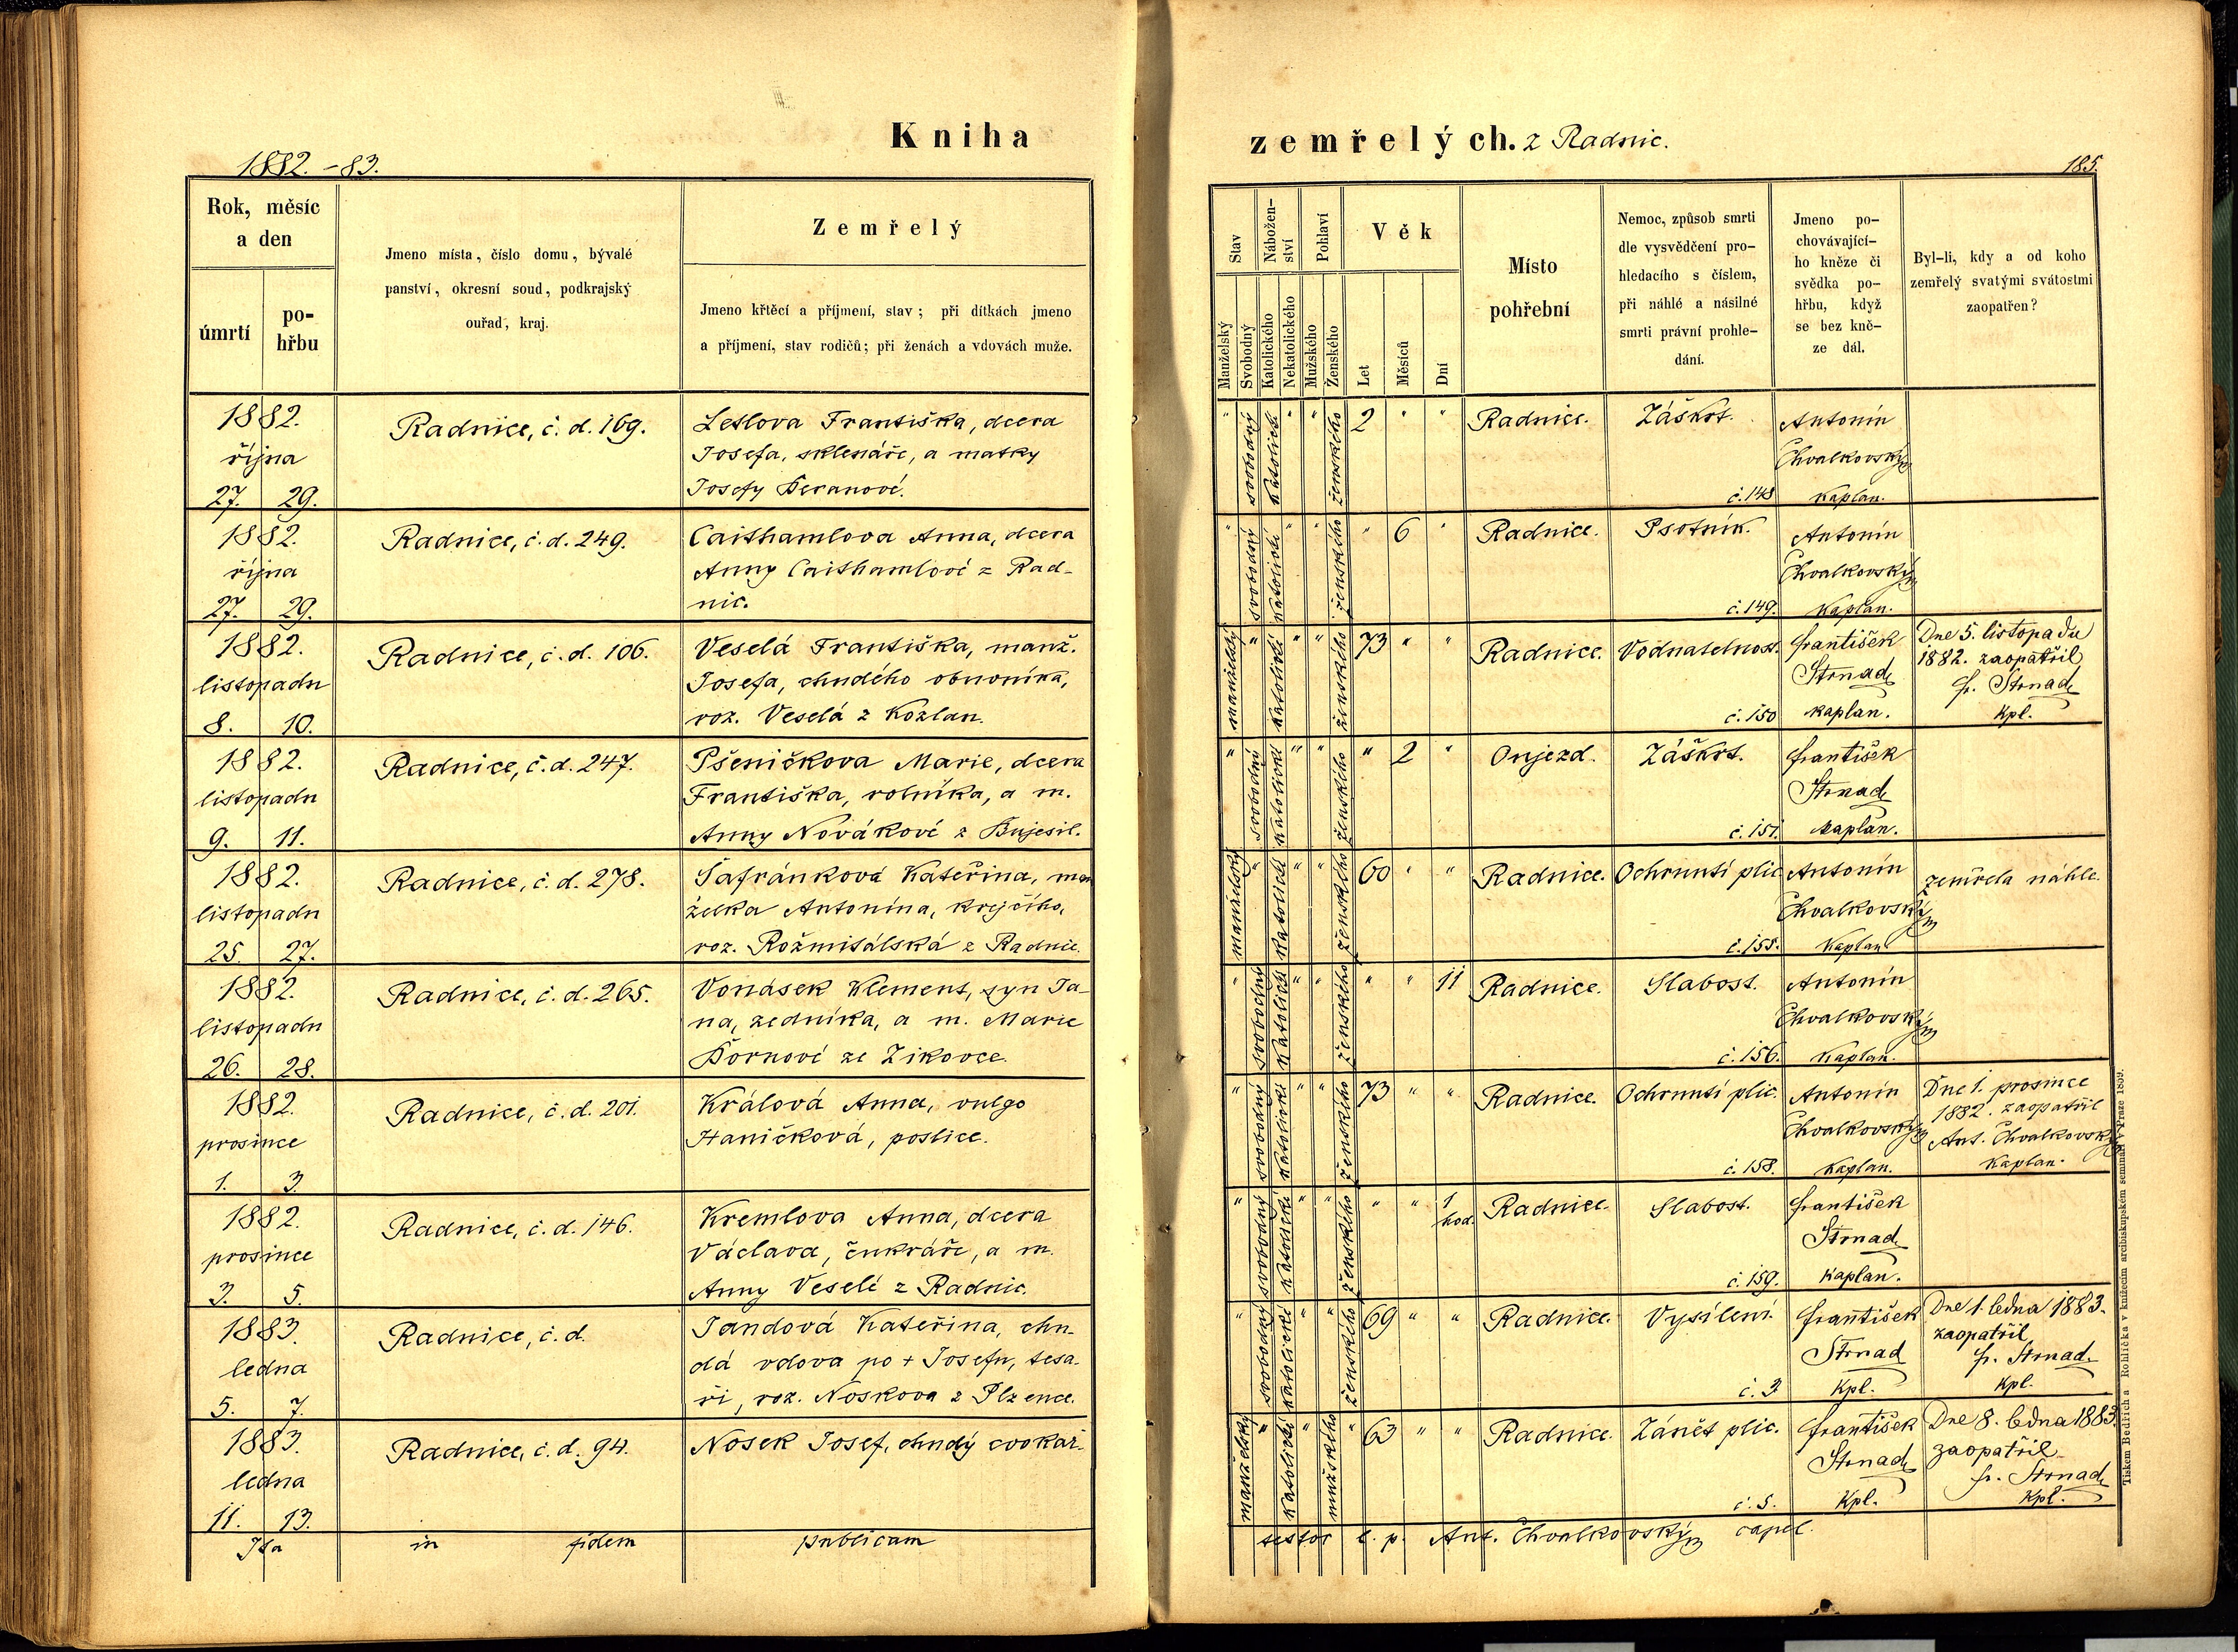 Kniha
1882. – 83.
Rok, měsíc
a den
úmrtí
po-
hřbu
Jmeno místa, číslo domu, bývalé
panství, okresní soud, podkrajský
ouřad, kraj.
Zemřelý
Jmeno křtěcí a příjmení, stav; při dítkách jmeno
a příjmení, stav rodičů; při ženách a vdovách muže.
1882.
října
27. 29.
Radnice, č. d. 169.
Františka, dcera
Josefa, sklenáře, a matky
Josefy Beranové.
1882.
října
27. 29.
Radnice, č. d. 249.
Caithamlova Anna, dcera
Anny Caithamlové z Rad-
nic.
1882.
listopadu
8. 10.
Radnice, č. d. 106.
Veselá Františka, manž.
Josefa, chudého obuvníka,
roz. Veselá z Kozlan.
1882.
listopadu
9. 11.
Radnice, č. d. 247.
Pšeničkova Marie, dcera
Františka, rolníka, a m.
Anny Novákové z Bujesil.
1882.
listopadu
25. 27.
Radnice, č. d. 278.
Šafránková Kateřina, man
želka Antonína, krejčího,
roz. Rožmitálská z Radnic.
1882.
listopadu
26. 28.
Radnice, č. d. 265.
Vonásek Klement, syn Ja-
na, zedníka, a m. Marie
Bornové ze Zikovce.
1882.
prosince
1. 3.
Radnice, č. d. 201.
Králová Anna, vulgo
Haničková, postice.
1882.
prosince
3. 5.
Radnice, č. d. 146.
Kremlova Anna, dcera
Václava, cukráře, a m.
Anny Veselé z Radnic.
1883.
ledna
5. 7.
Radnice, č. d.
Jandová Kateřina, chu-
dá vdova po + Josefu, tesa-
ři, roz. Noskova z Plzence.
1883.
ledna
11. 13.
Radnice, č. d. 94.
Nosek Josef, chudý cvokař.
Ita in fidem publicam
zemřelých. z Radnic.
185.
Stav
Nábožen-
ství
Pohlaví
Věk
Manželský
Svobodný
Katolického
Nekatolického
Mužského
Ženského
Let
Měsíců
Dní
Místo
pohřební
Nemoc, způsob smrti
dle vysvědčení pro-
hledacího s číslem,
při náhlé a násilné
smrti právní prohle-
dání.
Jmeno po-
chovávající-
ho kněze či
svědka po-
hřbu, když
se bez kně-
ze dál.
Byl-li, kdy a od koho
zemřelý svatými svátostmi
zaopatřen?
" svobodný katolické " " ženského 2 " " Radnice. Záškrt. Antonín
Chvalkovský
č. 148 kaplan.
" svobodný katolické " " ženského " 6 " Radnice. Psotník. Antonín
Chvalkovský
č. 149. kaplan.
manželský " katolické " " ženského 73 " " Radnice. Vodnatelnost. František Dne 5. listopadu
Strnad 1882. zaopatřil
fr. Strnad
č. 150 kaplan. kpl.
" svobodný katolické " " ženského " 2 " Oujezd. Záškrt. František
Strnad
č. 151. kaplan.
manželský " katolické " " ženského 60 " " Radnice. Ochrnutí plic Antonín zemřela náhle.
Chvalkovský
č. 155. kaplan
" svobodný katolické " " ženského " " 11 Radnice. Slabost. Antonín
Chvalkovský
č. 156. kaplan.
" svobodný katolické " " ženského 73 " " Radnice. Ochrnutí plic. Antonín Dne 1. prosince
1882. zaopatřil
Chvalkovský Ant. Chvalkovský
č. 158. kaplan. kaplan.
" svobodný katolické " " ženského " " 1
hod. Radnice. Slabost. František
Strnad
č. 159. kaplan.
" svobodný katolické " " ženského 69 " " Radnice. Vysílení. František Dne 1. ledna 1883.
zaopatřil
Strnad fr. Strnad.
č. 3 kpl. kpl.
manželský " katolické " mužského " 63 " " Radnice. Zánět plic. František Dne 8. ledna 1883
Strnad zaopatřil
fr. Strnad
č. 5. kpl. kpl.
testor l. p. Ant. Chvalkovský capel.
Tiskem Bedřicha Rohlíčka v knížecím arcibiskupském semináři v Praze 1869.